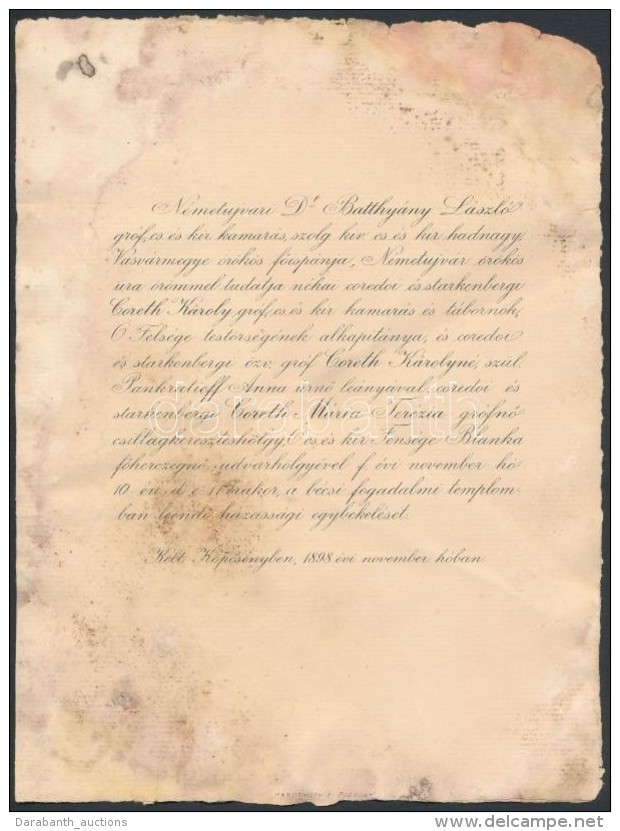 Németujvári Dr Batthyány László
gróf, cs. és kir. kamarás, szolg. kiv. cs. és kir. hadnagy,
Vasvármegye örökös főispánja, Németujvár örökös
ura örömmel tudatja néhai coredoi és starkenbergi
Coreth Károly gróf, cs. és kir. kamarás és tábornok,
Ő Felsége testőrségének alkapitánya, és coredoi
és starkenbergi özv. gróf Coreth Károlyné, szül.
Pankratieff Anna úrnő leányával, coredoi és
starkenbergi Coreth Mária Terézia grófnő
csillagkereszteshölgy, Ő cs. és kir. Fensége Blanka
főherczegnő udvarhölgyével f. évi november hó
10-én, d. e. 11 órakor, a bécsi fogadalmi templom-
ban leendő házassági egybekelését.
Kelt Köpcsényben, 1898. évi november hóban.
darabanth
Darabanth_auctions
delcampe.net